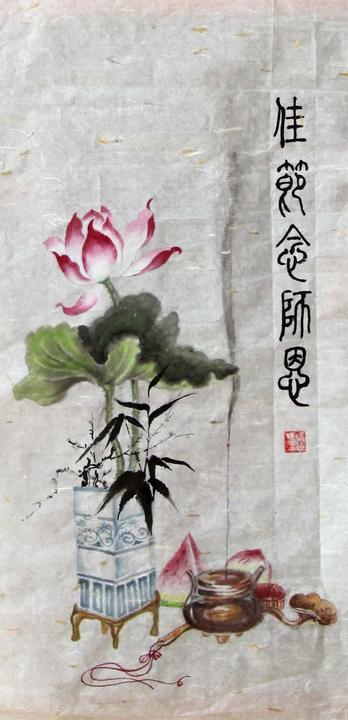 佳節念師恩